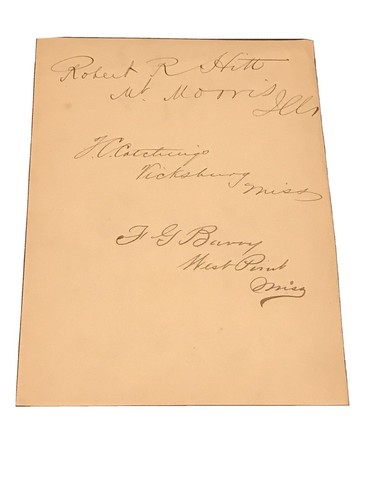 Robert R Hitt
Mt. Morris
Ills
T.C. Catchings
Vicksburg
Miss
F G Barry
West Point
Miss